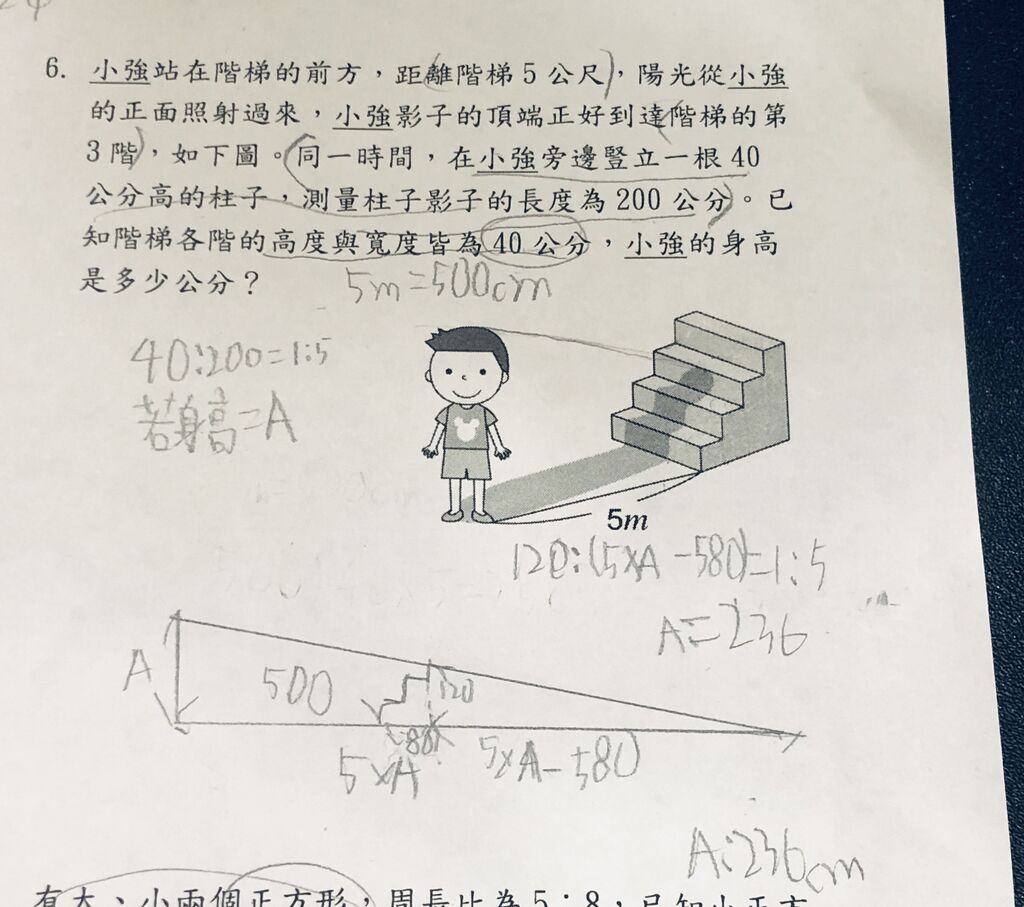 6. 小強站在階梯的前方，距離階梯5公尺，陽光從小強
的正面照射過來，小強影子的頂端正好到達階梯的第
3階，如下圖。同一時間，在小強旁邊豎立一根40
公分高的柱子，測量柱子影子的長度為200公分。已
知階梯各階的高度與寬度皆為40公分，小強的身高
是多少公分？
5m=500cm
40:200=1:5
若身高=A
5m
120:(5×A-580)=1:5
A=236
A
500
120
80
5×A
5×A-580
A:236cm
有大、小兩個正方形，周長比為5：8，已知小正方